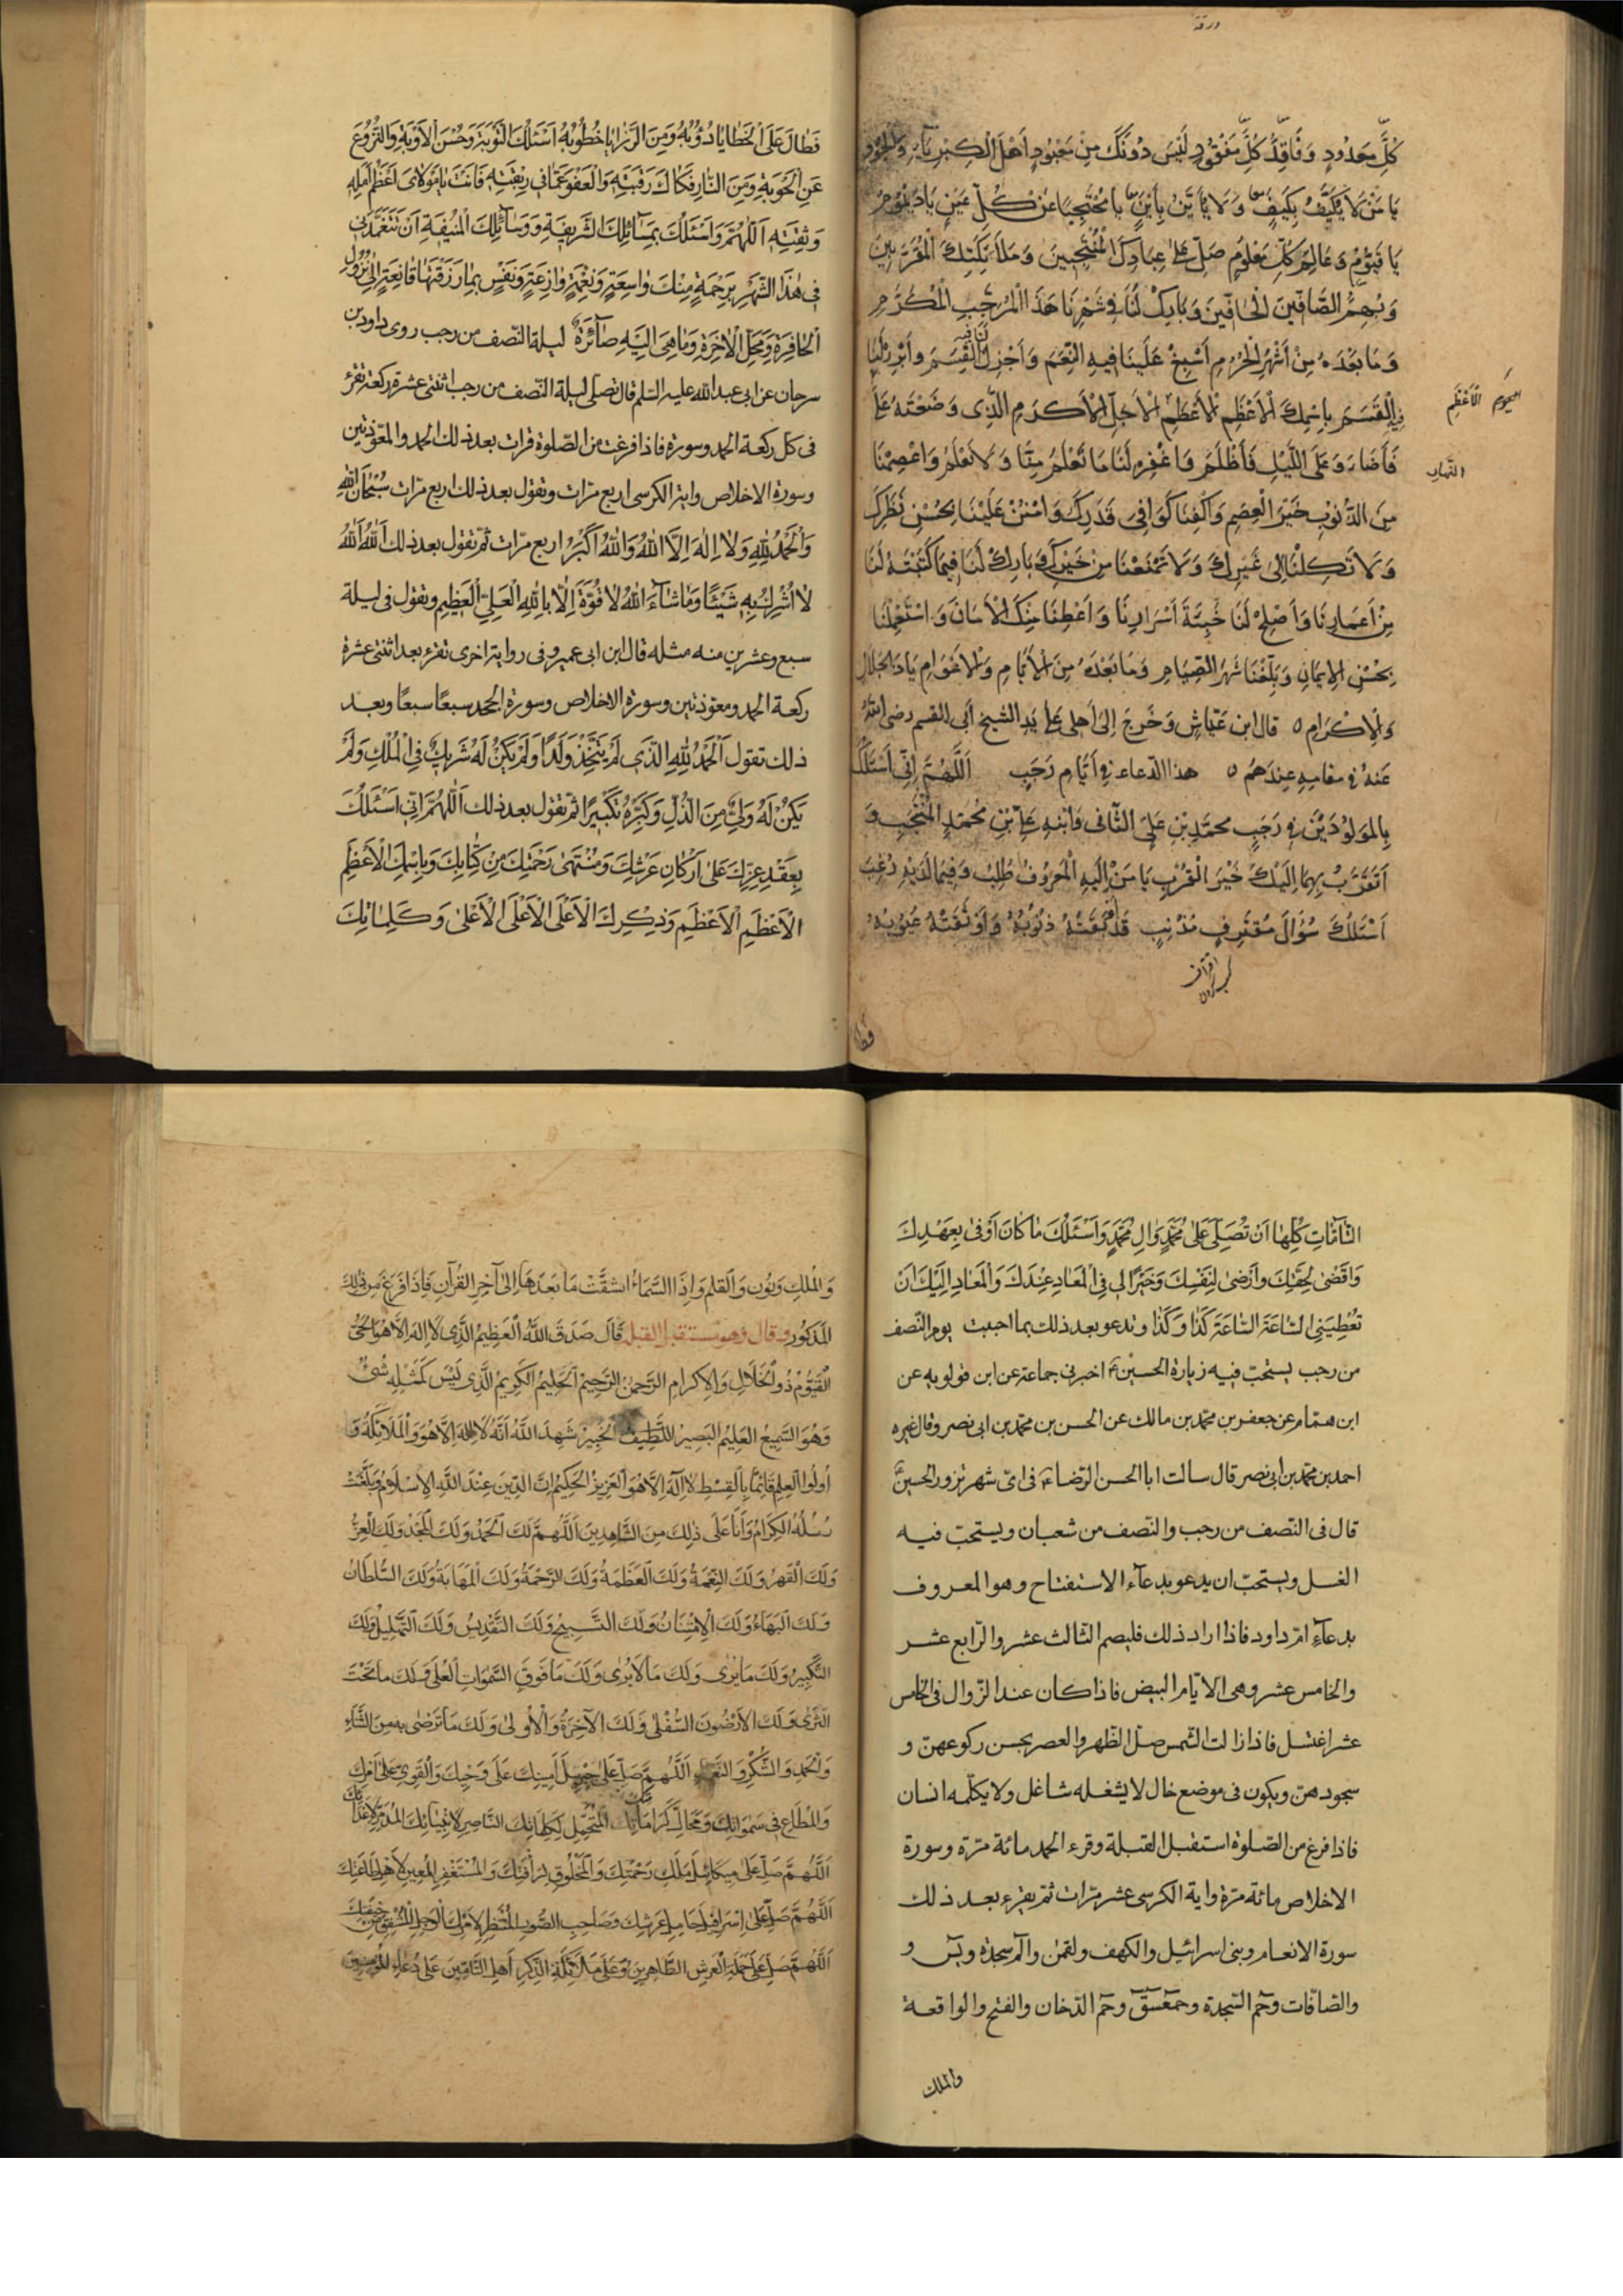 ورقة
كُلِّ مَحْدُودٍ وَفَاقِدَ كُلِّ مَفْقُودٍ لَيْسَ دُونَكَ مِنْ مَعْبُودٍ أَهْلَ الْكِبْرِيَاءِ وَالْجُودِ
يَا مَنْ لَا يُكَيَّفُ بِكَيْفٍ وَلَا يُأَيَّنُ بِأَيْنٍ يَا مُحْتَجِبًا عَنْ كُلِّ عَيْنٍ يَا دَيْمُومُ
يَا قَيُّومُ وَعَالِمَ كُلِّ مَعْلُومٍ صَلِّ عَلَى عِبَادِكَ الْمُنْتَجَبِينَ وَمَلَائِكَتِكَ الْمُقَرَّبِينَ
وَبُهْمِ الصَّافِّينَ الْحَافِّينَ وَبَارِكْ لَنَا فِي شَهْرِنَا هَذَا الْمُرَجَّبِ الْمُكَرَّمِ
وَمَا بَعْدَهُ مِنْ أَشْهُرِ الْحُرُمِ أَسْبِغْ عَلَيْنَا فِيهِ النِّعَمَ وَأَجْزِلْ لَنَا فِيهِ الْقِسَمَ وَأَبْرِرْ لَنَا
فِيهِ الْقَسَمَ بِاسْمِكَ الْأَعْظَمِ الْأَعْظَمِ الْأَجَلِّ الْأَكْرَمِ الَّذِي وَضَعْتَهُ عَلَى
الْأَعْظَمِ
النَّهَارِ
فَأَضَاءَ وَعَلَى اللَّيْلِ فَأَظْلَمَ وَاغْفِرْ لَنَا مَا تَعْلَمُ مِنَّا وَلَا نَعْلَمُ وَاعْصِمْنَا
مِنَ الذُّنُوبِ خَيْرَ الْعِصَمِ وَاكْفِنَا كَوَافِي قَدَرِكَ وَامْنُنْ عَلَيْنَا بِحُسْنِ نَظَرِكَ
وَلَا تَكِلْنَا إِلَى غَيْرِكَ وَلَا تَمْنَعْنَا مِنْ خَيْرِكَ وَبَارِكْ لَنَا فِيمَا كَتَبْتَهُ لَنَا
مِنْ أَعْمَارِنَا وَأَصْلِحْ لَنَا خَبِيئَةَ أَسْرَارِنَا وَأَعْطِنَا مِنْكَ الْأَمَانَ وَاسْتَعْمِلْنَا
بِحُسْنِ الْإِيمَانِ وَبَلِّغْنَا شَهْرَ الصِّيَامِ وَمَا بَعْدَهُ مِنَ الْأَيَّامِ وَالْأَعْوَامِ يَا ذَا الْجَلَالِ
وَالْإِكْرَامِ ٥ قال ابن عَيَّاشٍ وَخَرَجَ إِلَى أَهْلِي عَلَى يَدِ الشيخ أبي القسم رضى الله
عَنهُ في مقامِهِ عِندَهُمْ ٥ هذا الدّعاء في أَيَّامِ رَجَبٍ اَللَّهُمَّ اِنِّي أَسْئَلُكَ
بِالمَوْلُودَيْنِ في رَجَبٍ محمّدِ بنِ عَلِيٍّ الثَّانِي وَابْنِهِ عَلِيِّ بْنِ مُحَمَّدٍ الْمُنْتَجَبِ وَ
أَتَقَرَّبُ بِهِمَا إِلَيْكَ خَيْرَ الْقُرَبِ يَا مَنْ إِلَيْهِ الْمَعْرُوفُ طُلِبَ وَفِيمَا لَدَيْهِ رُغِبَ
أَسْئَلُكَ سُؤَالَ مُقْتَرِفٍ مُذْنِبٍ قَدْ أَوْبَقَتْهُ ذُنُوبُهُ وَأَوْثَقَتْهُ عُيُوبُهُ
فطال
فَطَالَ عَلَى الْخَطَايَا دُؤُبُهُ وَمِنَ الرَّزَايَا خُطُوبُهُ اَسْئَلُكَ التَّوْبَةَ وَحُسْنَ الْاَوْبَةِ وَالنُّزُوعَ
عَنِ الْحَوْبَةِ وَمِنَ النَّارِ فَكَاكَ رَقَبَتِهِ وَالْعَفْوَ عَمَّا فِي رِبْقَتِهِ فَاَنْتَ يَا مَوْلَايَ اَعْظَمُ اَمَلِهِ
وَثِقَتِهِ اَللّٰهُمَّ وَاَسْئَلُكَ بِمَسَائِلِكَ الشَّرِيفَةِ وَوَسَائِلِكَ الْمُنِيفَةِ اَنْ تَتَغَمَّدَنِي
فِي هٰذَا الشَّهْرِ بِرَحْمَةٍ مِنْكَ وَاسِعَةٍ وَنِعْمَةٍ وَازِعَةٍ وَنَفْسٍ بِمَا رَزَقْتَهَا قَانِعَةٍ اِلَى نُزُولِ
الْحَافِرَةِ وَمَحَلِّ الْاٰخِرَةِ وَمَا هِيَ اِلَيْهِ صَآئِرَةٌ ليلة النّصف من رجب روى داود بن
سرحان عن ابى عبد الله عليه السّلم قال تصلّى ليلة النّصف من رجب اثنتى عشرة ركعة تقرء
فى كل ركعة الحمد وسورة فاذا فرغت من الصّلوة قرات بعد ذلك الحمد والمعوّذتين
وسورة الاخلاص واية الكرسى اربع مرّات وتقول بعد ذلك اربع مرّات سُبْحَانَ اللهِ
وَالْحَمْدُ لِلّٰهِ وَلَا اِلٰهَ اِلَّا اللهُ وَاللهُ اَكْبَرُ اربع مرّات ثمّ تقول بعد ذلك اَللهُ اَللهُ
لَا اُشْرِكُ بِهِ شَيْئًا وَمَا شَآءَ اللهُ لَا قُوَّةَ اِلَّا بِاللهِ الْعَلِيِّ الْعَظِيمِ وتقول فى ليلة
سبع وعشرين منه مثله قال ابن ابى عمير وفى رواية اخرى تقرء بعد اثنتى عشرة
ركعة الحمد ومعوّذتين وسورة الاخلاص وسورة الجحد سبعًا سبعًا وبعد
ذلك تقول اَلْحَمْدُ لِلّٰهِ الَّذِي لَمْ يَتَّخِذْ وَلَدًا وَلَمْ يَكُنْ لَهُ شَرِيكٌ فِي الْمُلْكِ وَلَمْ
يَكُنْ لَهُ وَلِيٌّ مِنَ الذُّلِّ وَكَبِّرْهُ تَكْبِيرًا ثمّ تقول بعد ذلك اَللّٰهُمَّ اِنِّي اَسْئَلُكَ
بِعَقْدِ عِزِّكَ عَلَى اَرْكَانِ عَرْشِكَ وَمُنْتَهَى رَحْمَتِكَ مِنْ كِتَابِكَ وَبِاسْمِكَ الْاَعْظَمِ
الْاَعْظَمِ الْاَعْظَمِ وَذِكْرِكَ الْاَعْلَى الْاَعْلَى الْاَعْلَى وَكَلِمَاتِكَ
التَّآمَّاتِ كُلِّهَا اَنْ تُصَلِّيَ عَلَى مُحَمَّدٍ وَاٰلِ مُحَمَّدٍ وَاَسْئَلُكَ مَا كَانَ اَوْفَى بِعَهْدِكَ
وَاَقْضَى لِحَقِّكَ وَاَرْضَى لِنَفْسِكَ وَخَيْرًا لِي فِي الْمَعَادِ عِنْدَكَ وَالْمَعَادِ اِلَيْكَ اَنْ
تُعْطِيَنِي السَّاعَةَ السَّاعَةَ كَذَا وَكَذَا وتدعو بعد ذلك بما احببت يوم النّصف
من رجب يستحبّ فيه زيارة الحسين ع اخبرنى جماعة عن ابن قولويه عن
ابن همّام عن جعفر بن محمّد بن مالك عن الحسن بن محمّد بن ابى نصر وقال غيره
احمد بن محمّد بن ابى نصر قال سالت ابا الحسن الرّضا ع فى اىّ شهر نزور الحسين ع
قال فى النّصف من رجب والنّصف من شعبان ويستحبّ فيه
الغسل ويستحبّ ان يدعو بدعآء الاستفتاح وهو المعروف
بدعآء امّ داود فاذا اراد ذلك فليصم الثّالث عشر والرّابع عشر
والخامس عشر وهى الايّام البيض فاذا كان عند الزّوال فى الخامس
عشر اغتسل فاذا زالت الشّمس صلّى الظّهر والعصر يحسن ركوعهنّ و
سجودهنّ ويكون فى موضع خال لا يشغله شاغل ولا يكلّمه انسان
فاذا فرغ من الصّلوة استقبل القبلة وقرء الحمد مائة مرّة وسورة
الاخلاص مائة مرّة واية الكرسى عشر مرّات ثمّ يقرء بعد ذلك
سورة الانعام وبنى اسرائيل والكهف ولقمن والم سجدة ويس و
والصّافّات وحم السّجدة وحمعسق وحم الدّخان والفتح والواقعة
والملك
وَالْمُلكِ وَنُون وَالقلمِ وَإِذَا السَّمَاءُ انشقَّتْ مَا بَعدَهَا إِلَى آخِرِ القُرآنِ فَإِذَا فَرَغَ مِن ذَلِكَ
المَذكُورِ وقال وهو مستقبل القبلة قَالَ صَدَقَ اللَّهُ العَظِيمُ الَّذِي لَا إِلَهَ إِلَّا هُوَ الحَيُّ
القَيُّومُ ذُو الجَلَالِ وَالإِكرَامِ الرَّحمَنُ الرَّحِيمُ الحَلِيمُ الكَرِيمُ الَّذِي لَيْسَ كَمَثْلِهِ شَيْءٌ
وَهُوَ السَّمِيعُ العَلِيمُ البَصِيرُ اللَّطِيفُ الخَبِيرُ شَهِدَ اللَّهُ أَنَّهُ لَا إِلَهَ إِلَّا هُوَ وَالْمَلَائِكَةُ وَ
أُولُوا العِلمِ قَائِمًا بِالقِسْطِ لَا إِلَهَ إِلَّا هُوَ العَزِيزُ الحَكِيمُ إِنَّ الدِّينَ عِندَ اللَّهِ الإِسْلَامُ وَبَلَّغَتْ
رُسُلُهُ الكِرَامُ وَأَنَا عَلَى ذَلِكَ مِنَ الشَّاهِدِينَ اللَّهُمَّ لَكَ الحَمْدُ وَلَكَ المَجْدُ وَلَكَ العِزُّ
وَلَكَ القَهْرُ وَلَكَ النِّعْمَةُ وَلَكَ العَظَمَةُ وَلَكَ الرَّحْمَةُ وَلَكَ المَهَابَةُ وَلَكَ السُّلطَانُ
وَلَكَ البَهَاءُ وَلَكَ الإِمْتِنَانُ وَلَكَ التَّسبِيحُ وَلَكَ التَّقْدِيسُ وَلَكَ التَّهْلِيلُ وَلَكَ
التَّكْبِيرُ وَلَكَ مَا يُرَى وَلَكَ مَا لَا يُرَى وَلَكَ مَا فَوقَ السَّمَوَاتِ العُلَى وَلَكَ مَا تَحْتَ
الثَّرَى وَلَكَ الأَرَضُونَ السُّفْلَى وَلَكَ الآخِرَةُ وَالأُولَى وَلَكَ مَا تَرضَى بِهِ مِنَ الثَّنَاءِ
وَالحَمْدِ وَالشُّكْرِ وَالنَّعْمَاءِ اللَّهُمَّ صَلِّ عَلَى جَبْرَئِيلَ أَمِينِكَ عَلَى وَحْيِكَ وَالقَوِيِّ عَلَى أَمْرِكَ
وَالمُطَاعِ فِي سَمَوَاتِكَ وَمَحَالِّ كَرَامَاتِكَ المُتَحَمِّلِ لِكَلِمَاتِكَ النَّاصِرِ لِأَنْبِيَائِكَ المُدَمِّرِ لِأَعْدَائِكَ
اللَّهُمَّ صَلِّ عَلَى مِيكَائِيلَ مَلَكِ رَحْمَتِكَ وَالمَخْلُوقِ لِرَأْفَتِكَ وَالمُسْتَغْفِرِ المُعِينِ لِأَهْلِ طَاعَتِكَ
اللَّهُمَّ صَلِّ عَلَى إِسْرَافِيلَ حَامِلِ عَرْشِكَ وَصَاحِبِ الصُّورِ المُنْتَظِرِ لِأَمْرِكَ الوَجِلِ المُشْفِقِ مِن خِيفَتِكَ
اللَّهُمَّ صَلِّ عَلَى حَمَلَةِ العَرشِ الطَّاهِرِينَ وَعَلَى مَلَائِكَةِ الذِّكرِ أَهلِ التَّأمِينِ عَلَى دُعَاءِ المُؤمِنِينَ